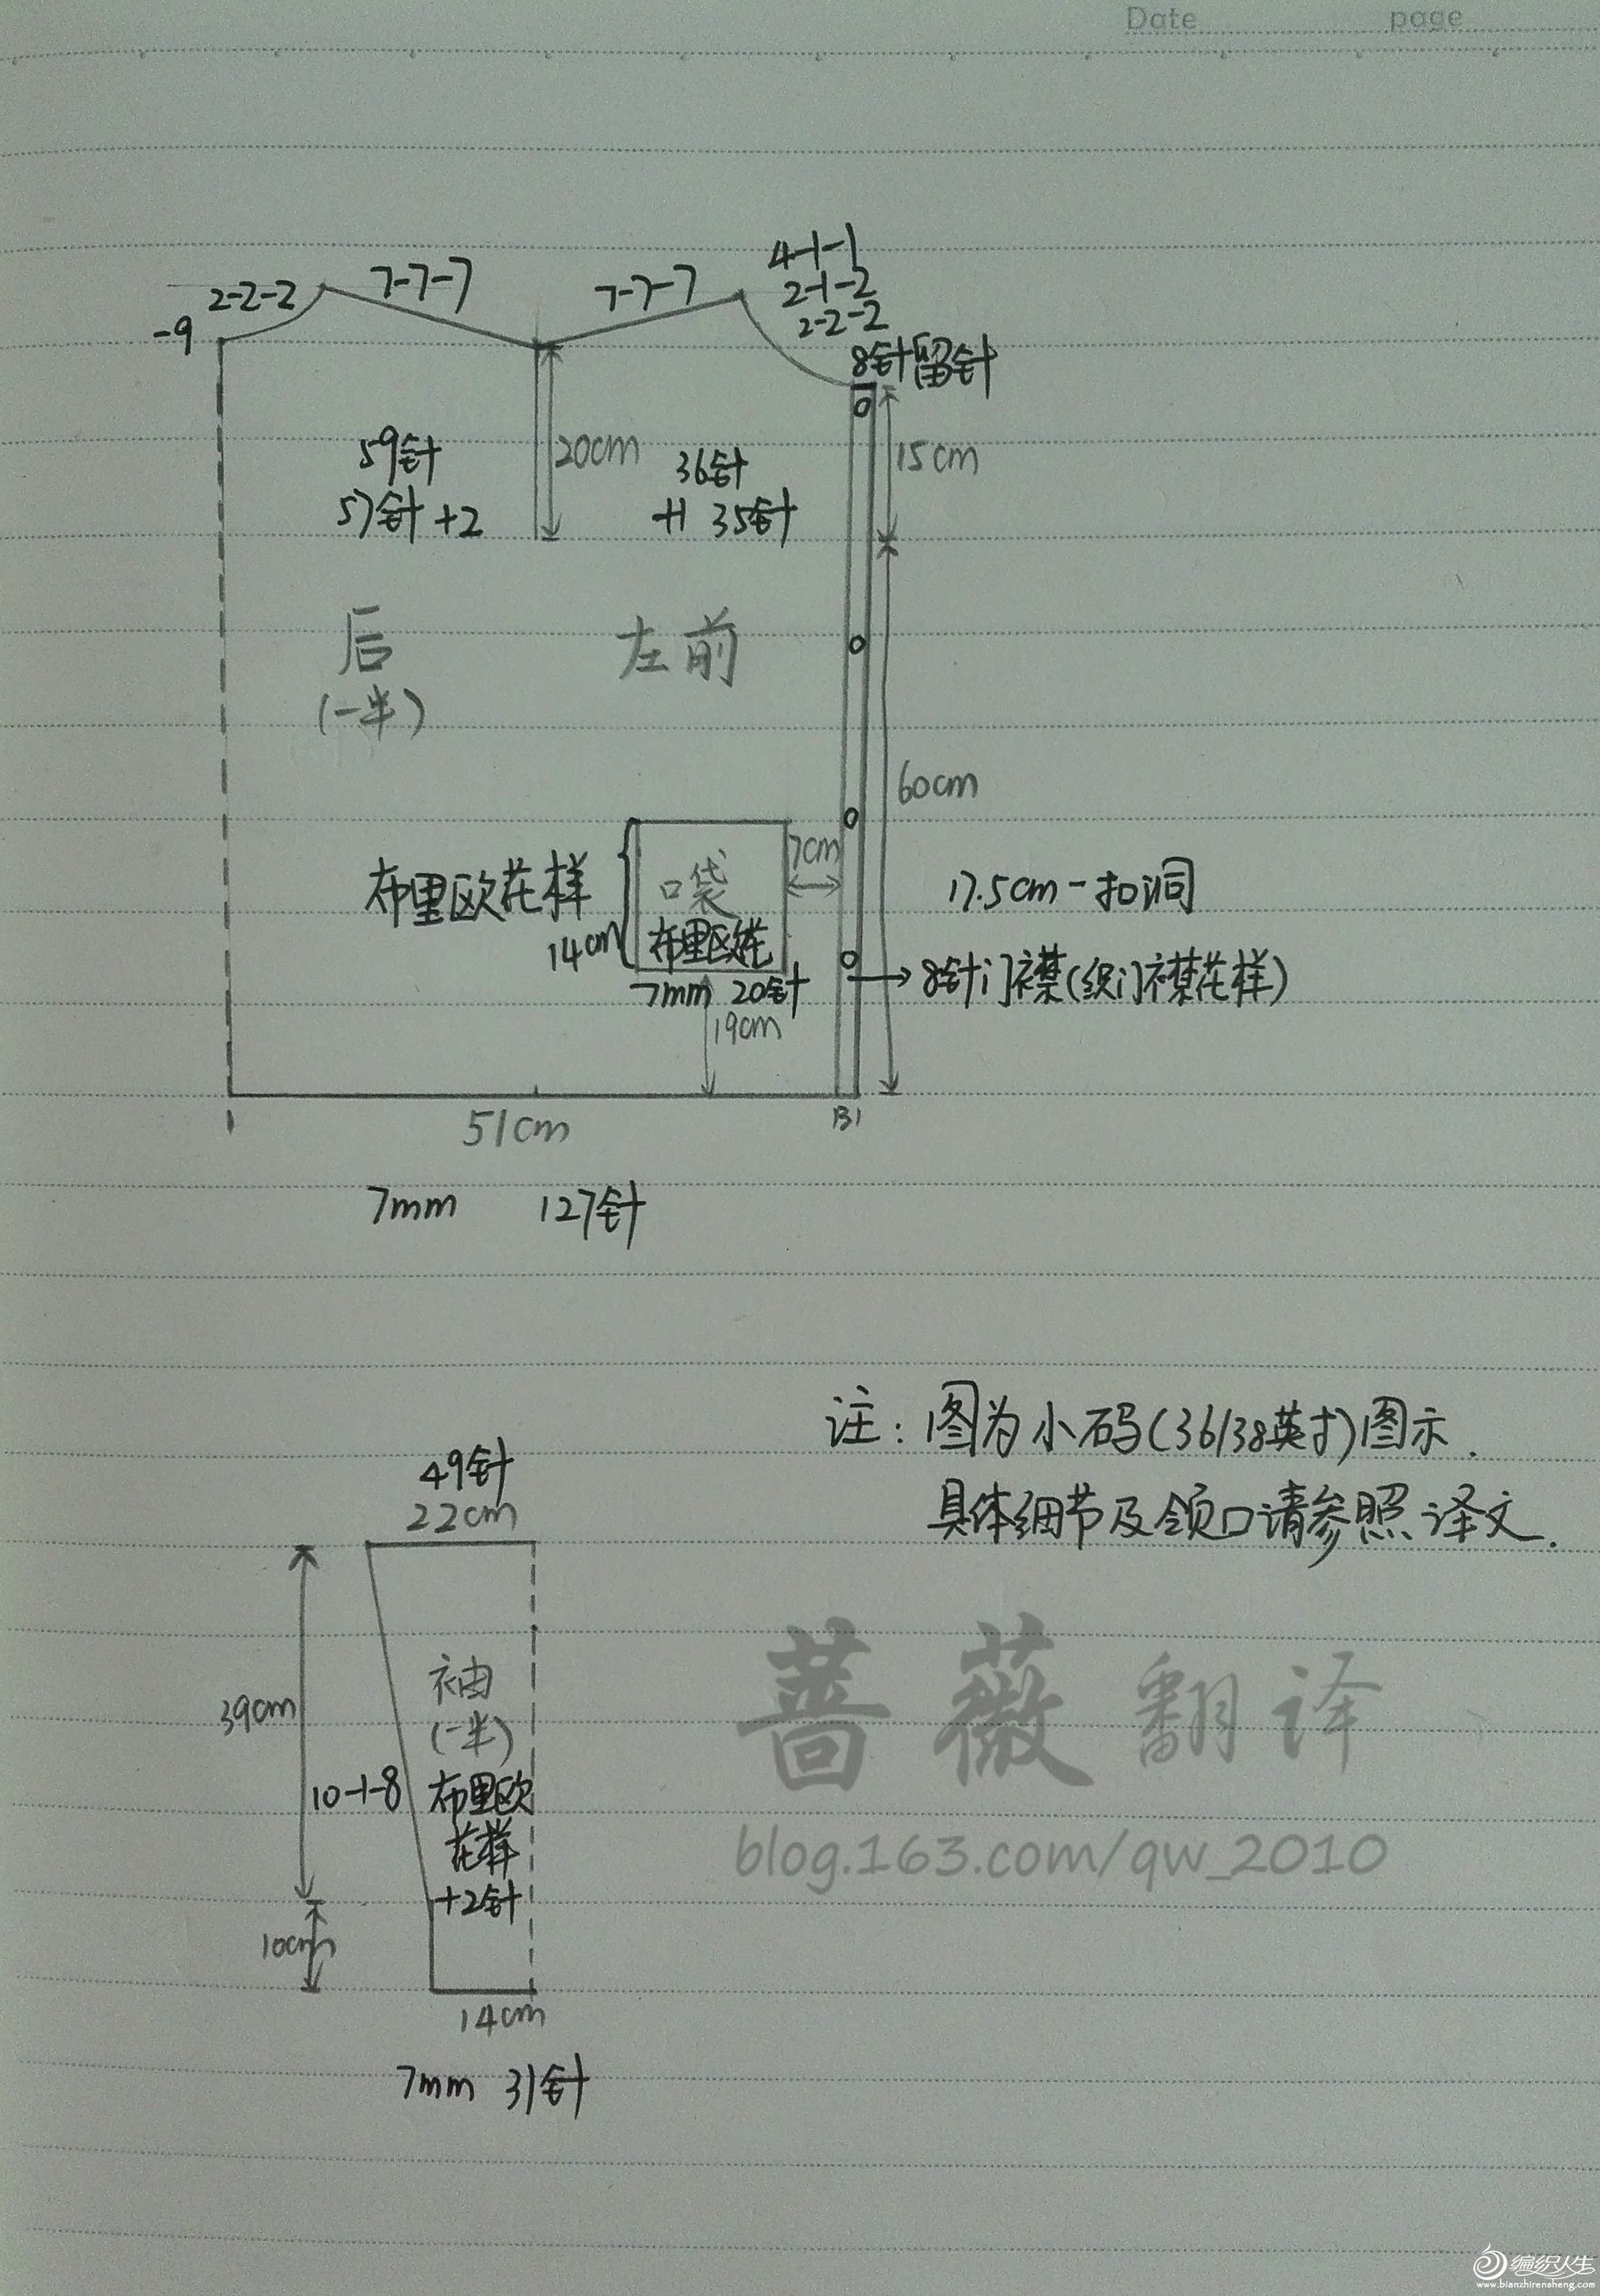 Date page
4-1-1
2-2-2 7-7-7 7-7-7 2-1-2
2-2-2
-9
8针留针
59针 20cm 36针 15cm
57针+2 +1 35针
后 左前
(一半)
60cm
7cm
布里欧花样 口袋 17.5cm一扣洞
14cm 布里欧花
7mm 20针 8针门襟(织门襟花样)
19cm
51cm
7mm 127针
注:图为小码(36/38英寸)图示.
49针
22cm
具体细节及领口请参照译文.
袖
39cm (一半)
10-1-8 布里欧
花样
+2针
10cm
14cm
7mm 31针
蔷薇翻译
blog.163.com/qw_2010
编织人生
www.bianzhirensheng.com